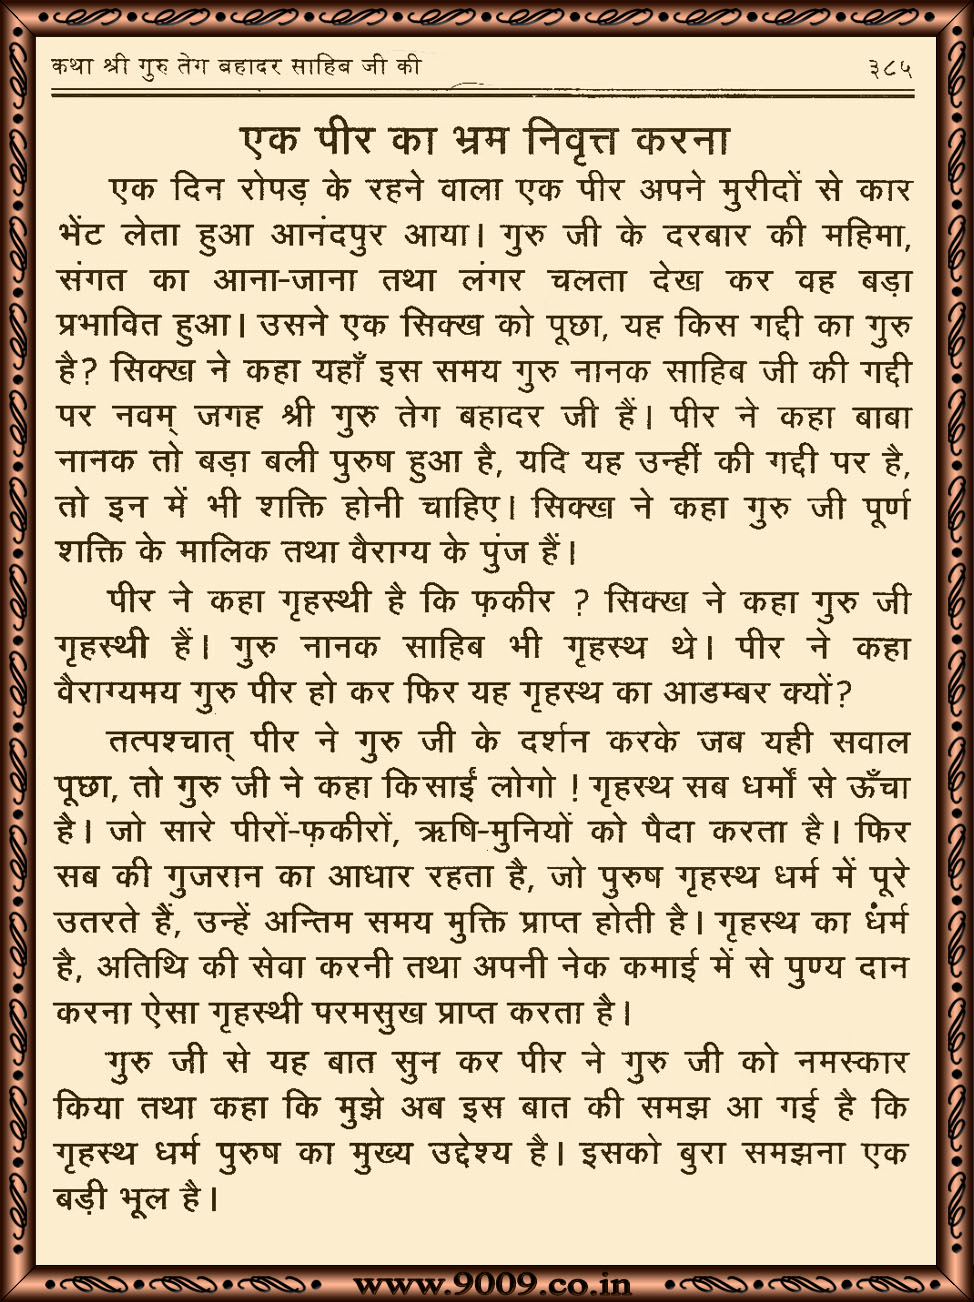 कथा श्री गुरु तेग बहादर साहिब जी की ३८५
एक पीर का भ्रम निवृत्त करना
एक दिन रोपड़ के रहने वाला एक पीर अपने मुरीदों से कार
भेंट लेता हुआ आनंदपुर आया। गुरु जी के दरबार की महिमा,
संगत का आना-जाना तथा लंगर चलता देख कर वह बड़ा
प्रभावित हुआ। उसने एक सिक्ख को पूछा, यह किस गद्दी का गुरु
है? सिक्ख ने कहा यहाँ इस समय गुरु नानक साहिब जी की गद्दी
पर नवम् जगह श्री गुरु तेग बहादर जी हैं। पीर ने कहा बाबा
नानक तो बड़ा बली पुरुष हुआ है, यदि यह उन्हीं की गद्दी पर है,
तो इन में भी शक्ति होनी चाहिए। सिक्ख ने कहा गुरु जी पूर्ण
शक्ति के मालिक तथा वैराग्य के पुंज हैं।
पीर ने कहा गृहस्थी है कि फ़कीर ? सिक्ख ने कहा गुरु जी
गृहस्थी हैं। गुरु नानक साहिब भी गृहस्थ थे। पीर ने कहा
वैराग्यमय गुरु पीर हो कर फिर यह गृहस्थ का आडम्बर क्यों?
तत्पश्चात् पीर ने गुरु जी के दर्शन करके जब यही सवाल
पूछा, तो गुरु जी ने कहा कि साईं लोगो ! गृहस्थ सब धर्मों से ऊँचा
है। जो सारे पीरों-फ़कीरों, ऋषि-मुनियों को पैदा करता है। फिर
सब की गुजरान का आधार रहता है, जो पुरुष गृहस्थ धर्म में पूरे
उतरते हैं, उन्हें अन्तिम समय मुक्ति प्राप्त होती है। गृहस्थ का धर्म
है, अतिथि की सेवा करनी तथा अपनी नेक कमाई में से पुण्य दान
करना ऐसा गृहस्थी परमसुख प्राप्त करता है।
गुरु जी से यह बात सुन कर पीर ने गुरु जी को नमस्कार
किया तथा कहा कि मुझे अब इस बात की समझ आ गई है कि
गृहस्थ धर्म पुरुष का मुख्य उद्देश्य है। इसको बुरा समझना एक
बड़ी भूल है।
www.9009.co.in